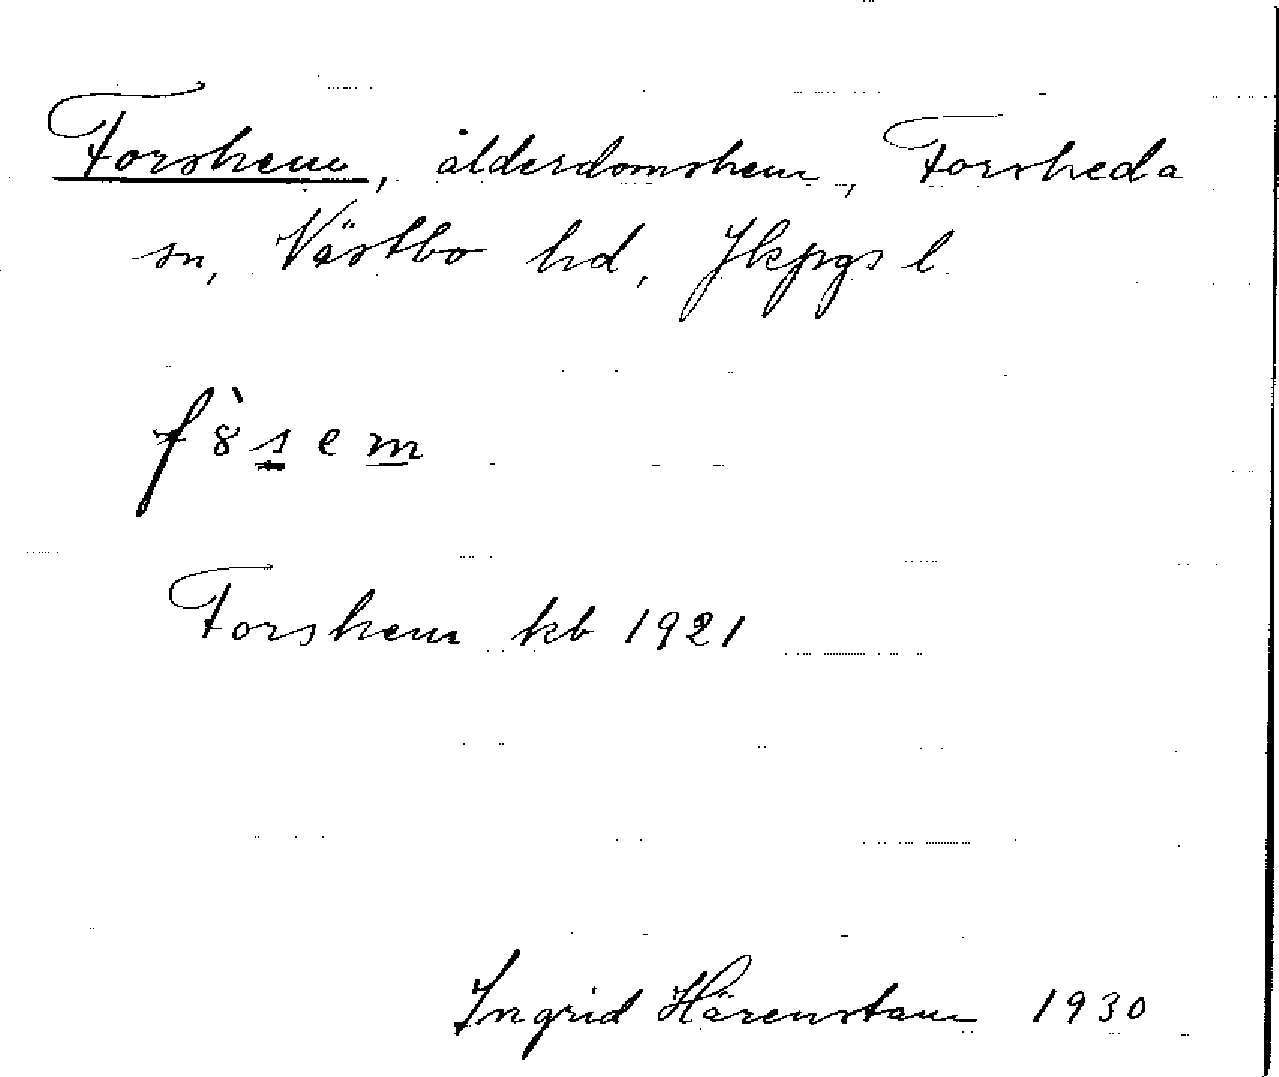 Forshem, ålderdomshem, Forsheda
sn, Västbo hd, Jkpgs l
f8̀s̲em̲
Forshem kb 1921
Ingrid Härenstam 1930